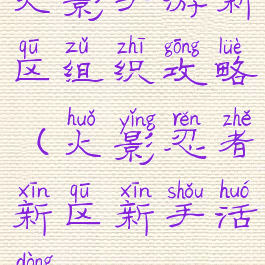 火影手游新
qū zǔ zhī gōng lüè
区组织攻略
huǒ yǐng rěn zhě
(火影忍者
xīn qū xīn shǒu huó
新区新手活
dòng